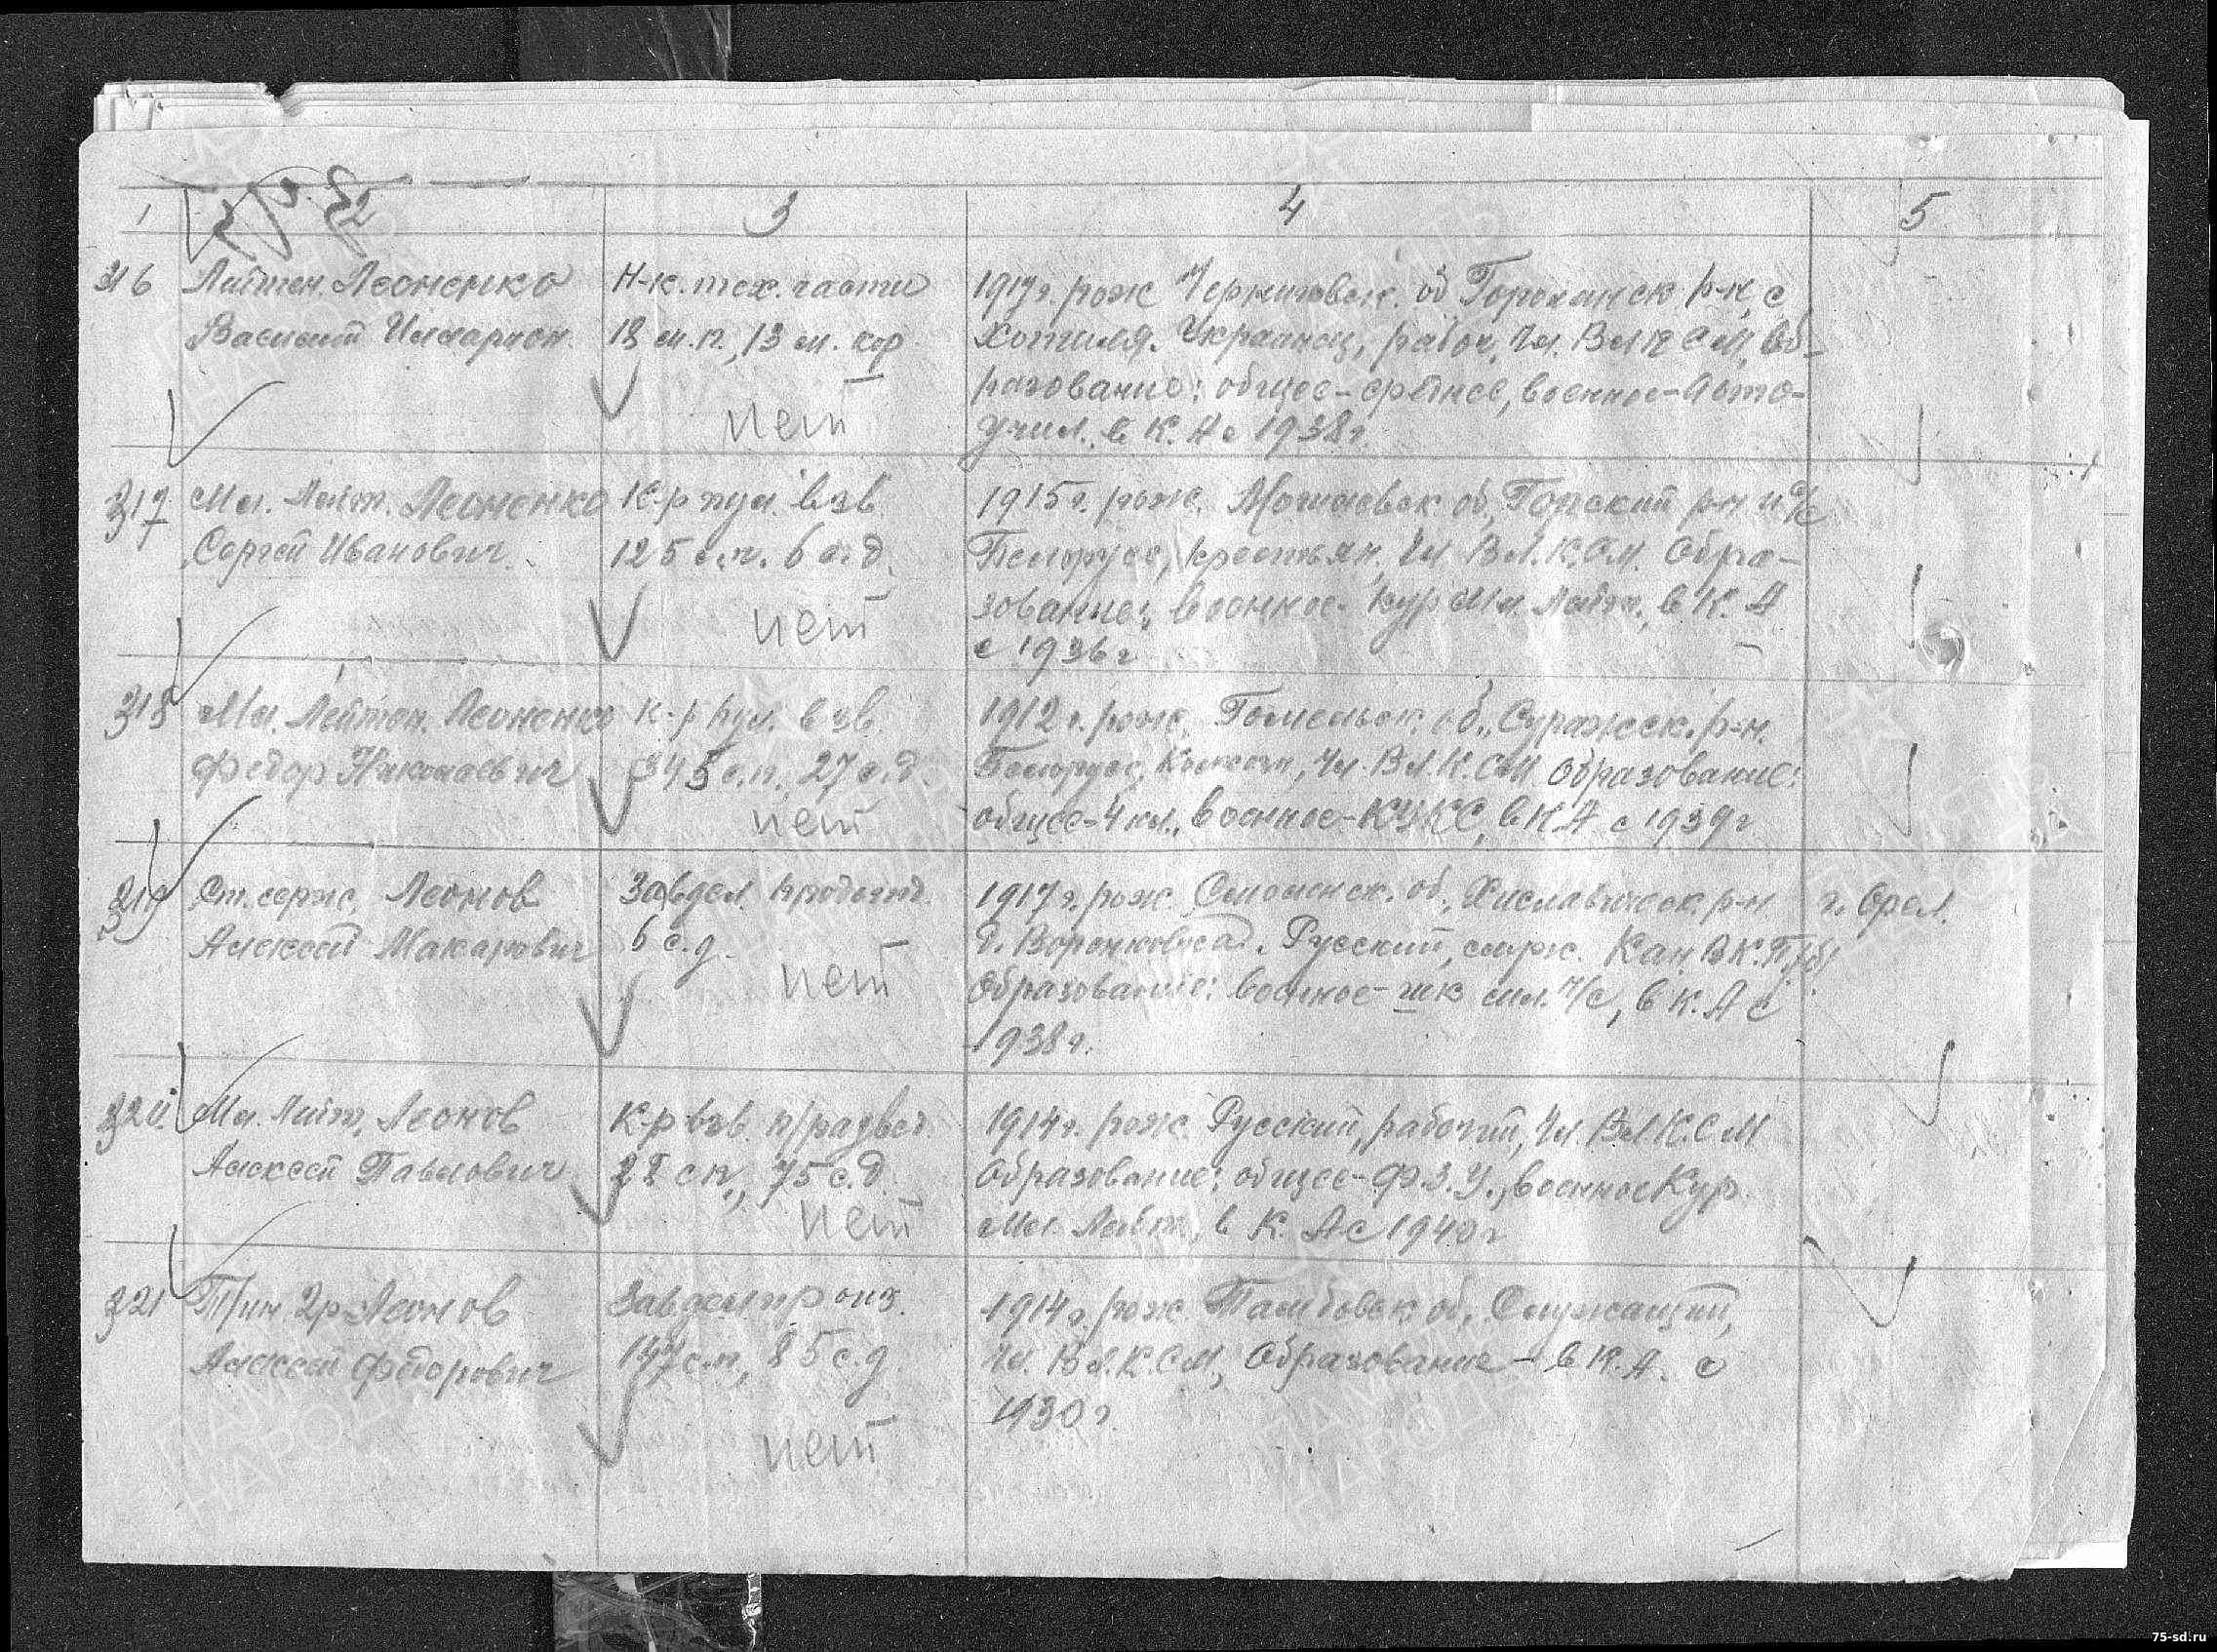 1 2 3 4 5
316 Лейтен. Леоненко
Василий Иларион.
Н-к. тех. части
18 м.п., 13 м. кор.
нет
1917 г. рож Черниговск. об Городнянск р-н, с
Украинец, рабоч, Чл. ВЛКСМ, Об-
разование: общее - среднее, военное - Авто-
учил., в К. А с 1938 г.
317 Мл. Лейт. Леоненко
Сергей Иванович.
К-р пул. взв.
125 с.п. 6 с.д.
нет
1915 г. рож. Могилевск об, р-н
Белорусс, крестьян, Чл. В.Л.К.С.М. Обра-
зование: военное - кур Мл. Лейт., в К. А
с 1936 г
318 Мл. Лейтен. Леоненко
Федор Николаевич
К-р пул. взв.
345 с.п., 27 с.д.
нет
1912 г. рож. Гомельск. об., Суражск. р-н.
Белорусс, Чл. В.Л.К.С.М Образование:
общее - 4 кл., военное - КУКС, в К А с 1939 г
319 Ст. серж. Леонов
Алексей Макарович
Завдел.
6 с.д.
нет
1917 г. рож. Смоленск. об., Хиславичск. р-н
д. Русский, служ. Кан. В К.П./б/
Образование: военное - шк мл. н/с, в К. А с
1938 г.
г. Орел.
320 Мл. Лейт. Леонов
Алексей Павлович
К-р взв. п/развед
22 сп., 75 с.д.
нет
1914 г. рож. Русский, рабочий, Чл. В.Л.К.С М
Образование: общее - Ф.З.У., военное Кур.
Мл. Лейт., в К. А с 1940 г
321 Т/ин. 2р Леонов
Алексей Федорович
Завделпроиз.
85 с.д
нет
1914 г. рож. Тамбовск об., Служащий,
Чл. В Л.К.С М, Образование - в К.А. с
1930 г.
ПАМЯТЬ
НАРОДА
75-sd.ru